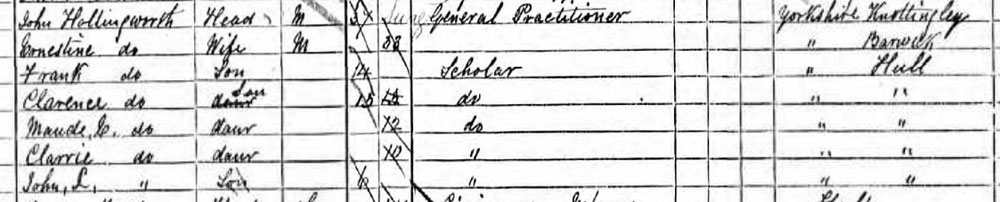 John Hollingworth Head M General Practitioner Yorkshire Knottingley
Ernestine do Wife M 33 " Barwick
Frank do Son 14 Scholar " Hull
Clarence do daur Son 15 do " "
Maude, E. do daur 12 do " "
Clarrie do daur 10 " " "
John, L, " Son " " "